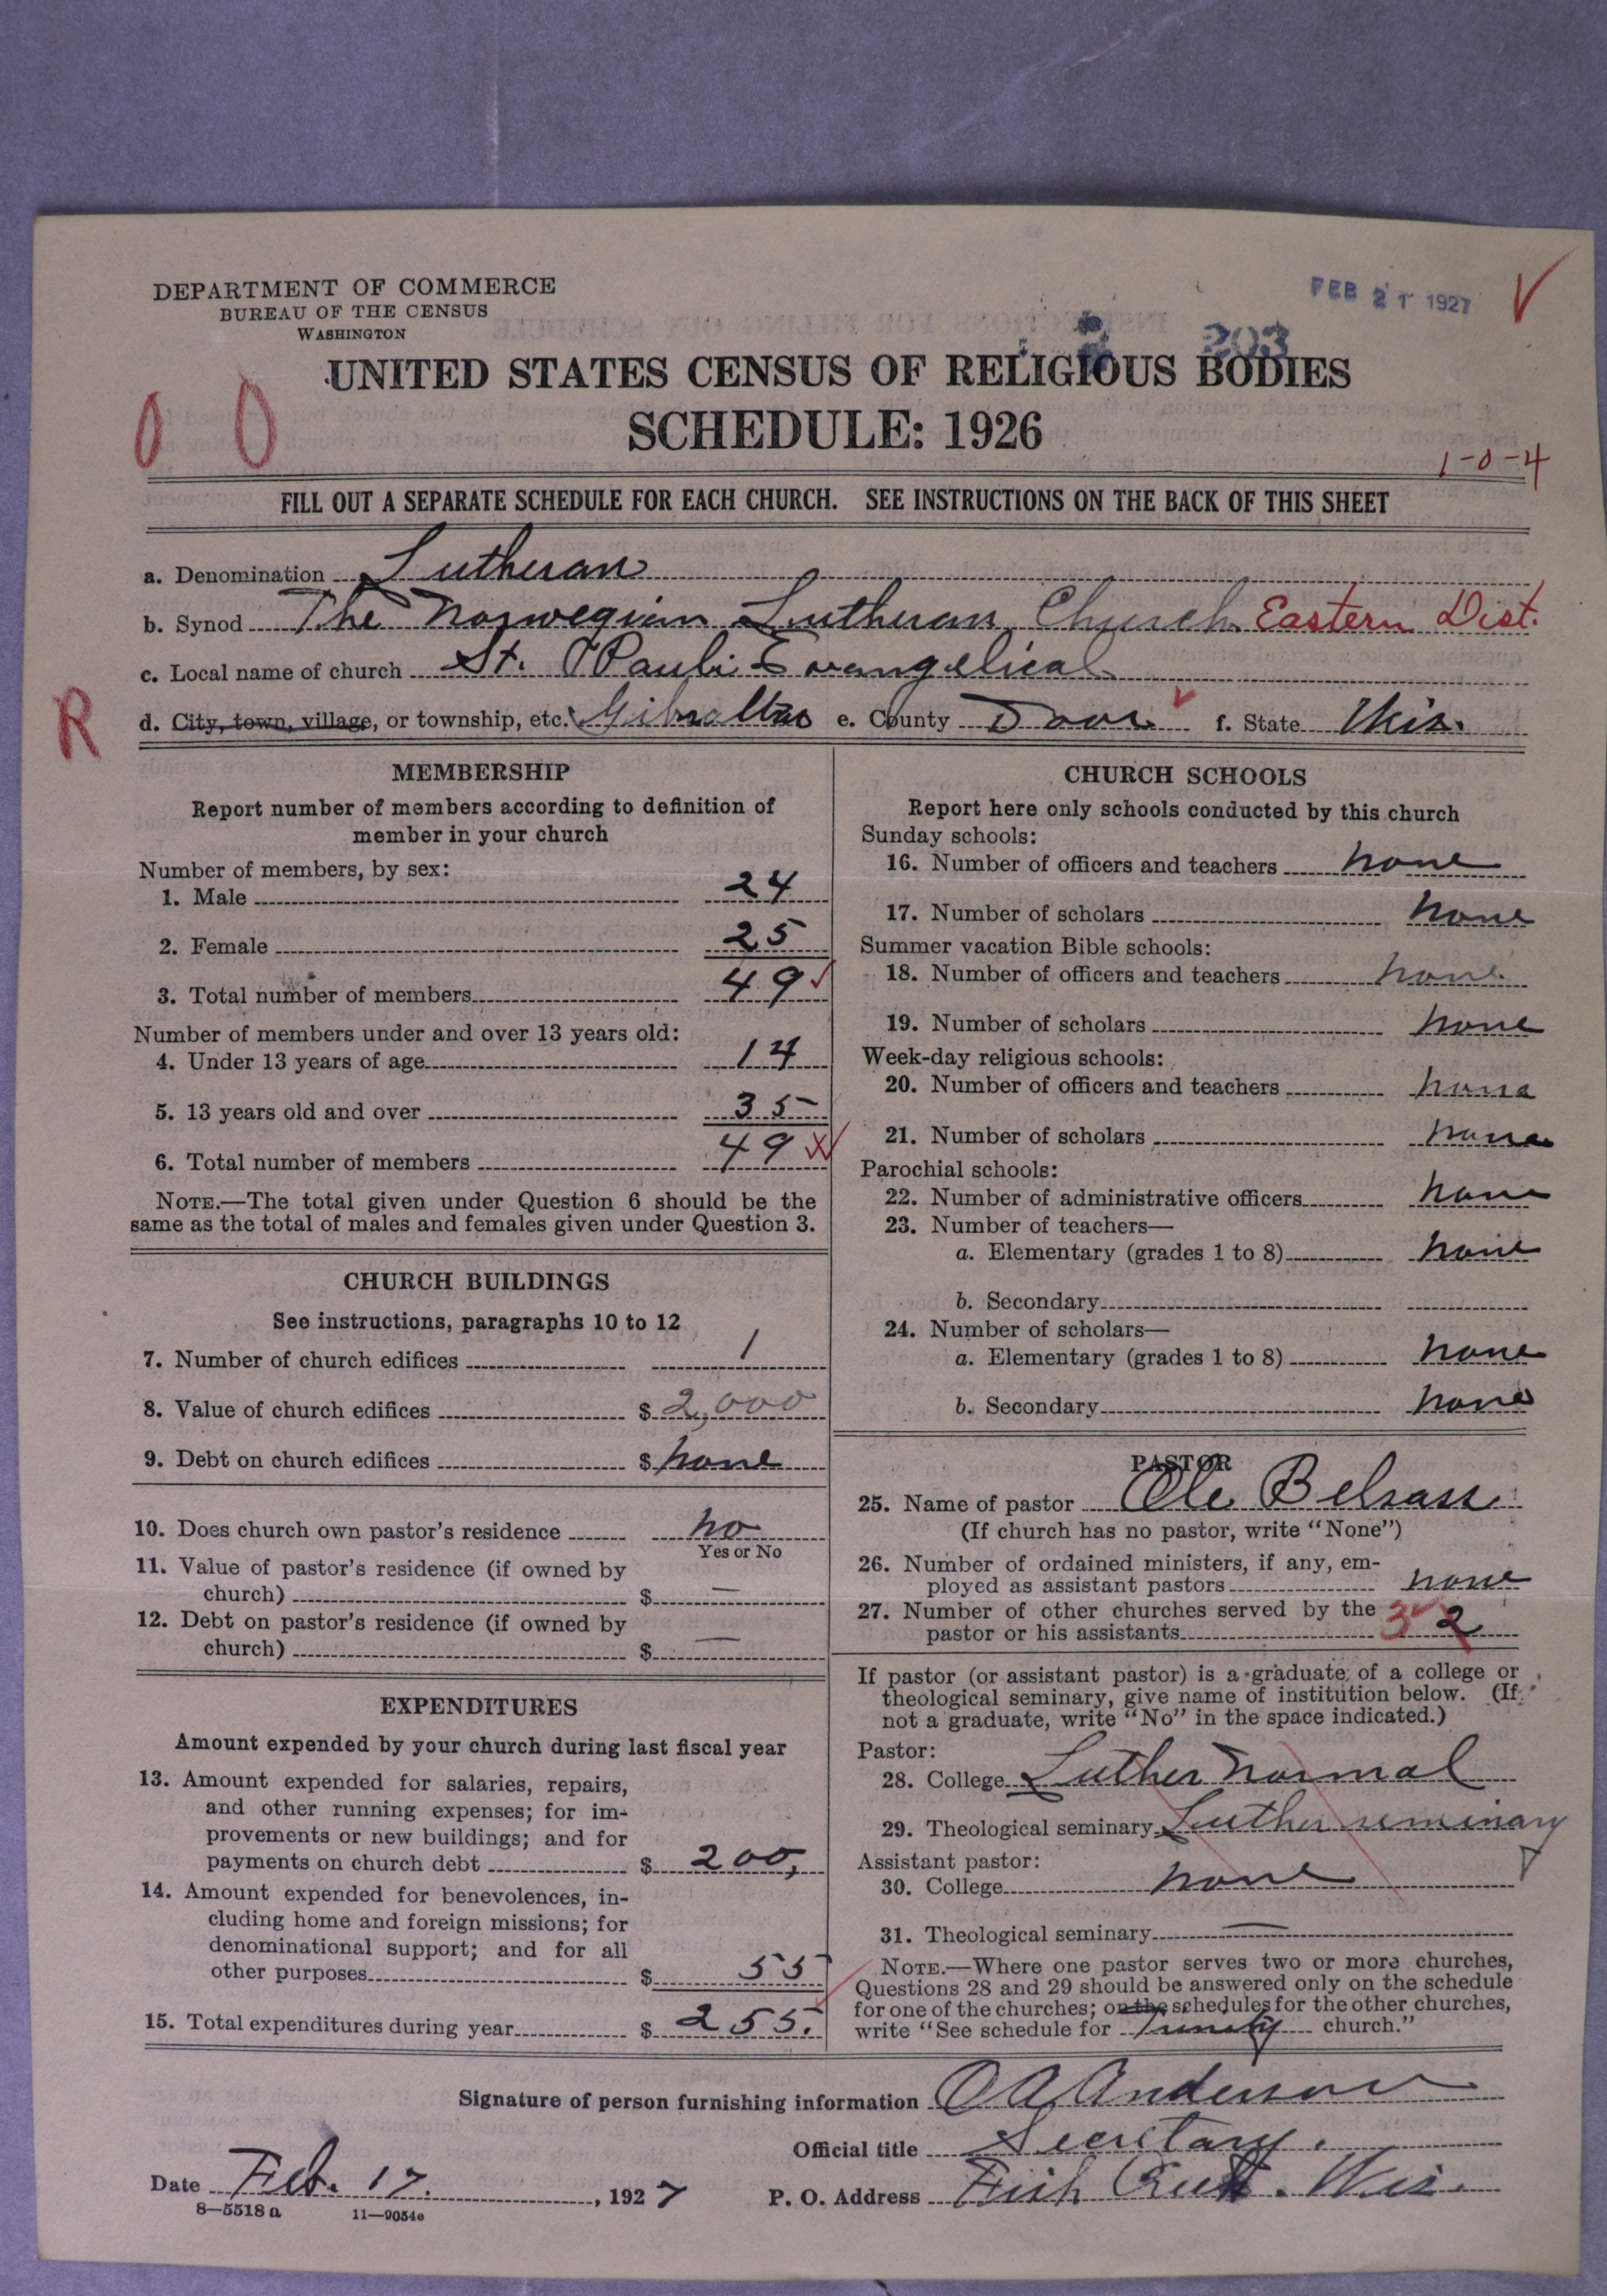 DEPARTMENT OF COMMERCE
BUREAU OF THE CENSUS
WASHINGTON
FEB 21 1927
203
UNITED STATES CENSUS OF RELIGIOUS BODIES
SCHEDULE: 1926
0 0
1-0-4
FILL OUT A SEPARATE SCHEDULE FOR EACH CHURCH. SEE INSTRUCTIONS ON THE BACK OF THIS SHEET
a. Denomination Lutheran
b. Synod The Norwegian Lutheran Church Eastern Dist.
c. Local name of church St. Pauli Evangelical
R
d. City, town, village, or township, etc. Gibraltar e. County Door f. State Wis.
MEMBERSHIP
Report number of members according to definition of
member in your church
Number of members, by sex:
1. Male 24
2. Female 25
3. Total number of members 49
Number of members under and over 13 years old:
4. Under 13 years of age 14
5. 13 years old and over 35
6. Total number of members 49
NOTE.—The total given under Question 6 should be the
same as the total of males and females given under Question 3.
CHURCH BUILDINGS
See instructions, paragraphs 10 to 12
7. Number of church edifices 1
8. Value of church edifices $ 2,000
9. Debt on church edifices $ none
10. Does church own pastor's residence no
Yes or No
11. Value of pastor's residence (if owned by
church) $ —
12. Debt on pastor's residence (if owned by
church) $ —
EXPENDITURES
Amount expended by your church during last fiscal year
13. Amount expended for salaries, repairs,
and other running expenses; for im-
provements or new buildings; and for
payments on church debt $ 200,
14. Amount expended for benevolences, in-
cluding home and foreign missions; for
denominational support; and for all
other purposes $ 55
15. Total expenditures during year $ 255.
CHURCH SCHOOLS
Report here only schools conducted by this church
Sunday schools:
16. Number of officers and teachers none
17. Number of scholars none
Summer vacation Bible schools:
18. Number of officers and teachers none
19. Number of scholars none
Week-day religious schools:
20. Number of officers and teachers none
21. Number of scholars none
Parochial schools:
22. Number of administrative officers none
23. Number of teachers—
a. Elementary (grades 1 to 8) none
b. Secondary
24. Number of scholars—
a. Elementary (grades 1 to 8) none
b. Secondary none
PASTOR
25. Name of pastor Ole
(If church has no pastor, write "None")
26. Number of ordained ministers, if any, em-
ployed as assistant pastors none
27. Number of other churches served by the
pastor or his assistants 3 2
If pastor (or assistant pastor) is a graduate of a college or
theological seminary, give name of institution below. (If
not a graduate, write "No" in the space indicated.)
Pastor:
28. College Luther Normal
29. Theological seminary Luther seminary
Assistant pastor:
30. College none
31. Theological seminary —
NOTE.—Where one pastor serves two or more churches,
Questions 28 and 29 should be answered only on the schedule
for one of the churches; on the schedules for the other churches,
write "See schedule for Trinity church."
Signature of person furnishing information O A Anderson
Official title Secretary.
Date Feb. 17. , 1927
P. O. Address Fish Creek. Wis.
8—5518 a 11—9054e